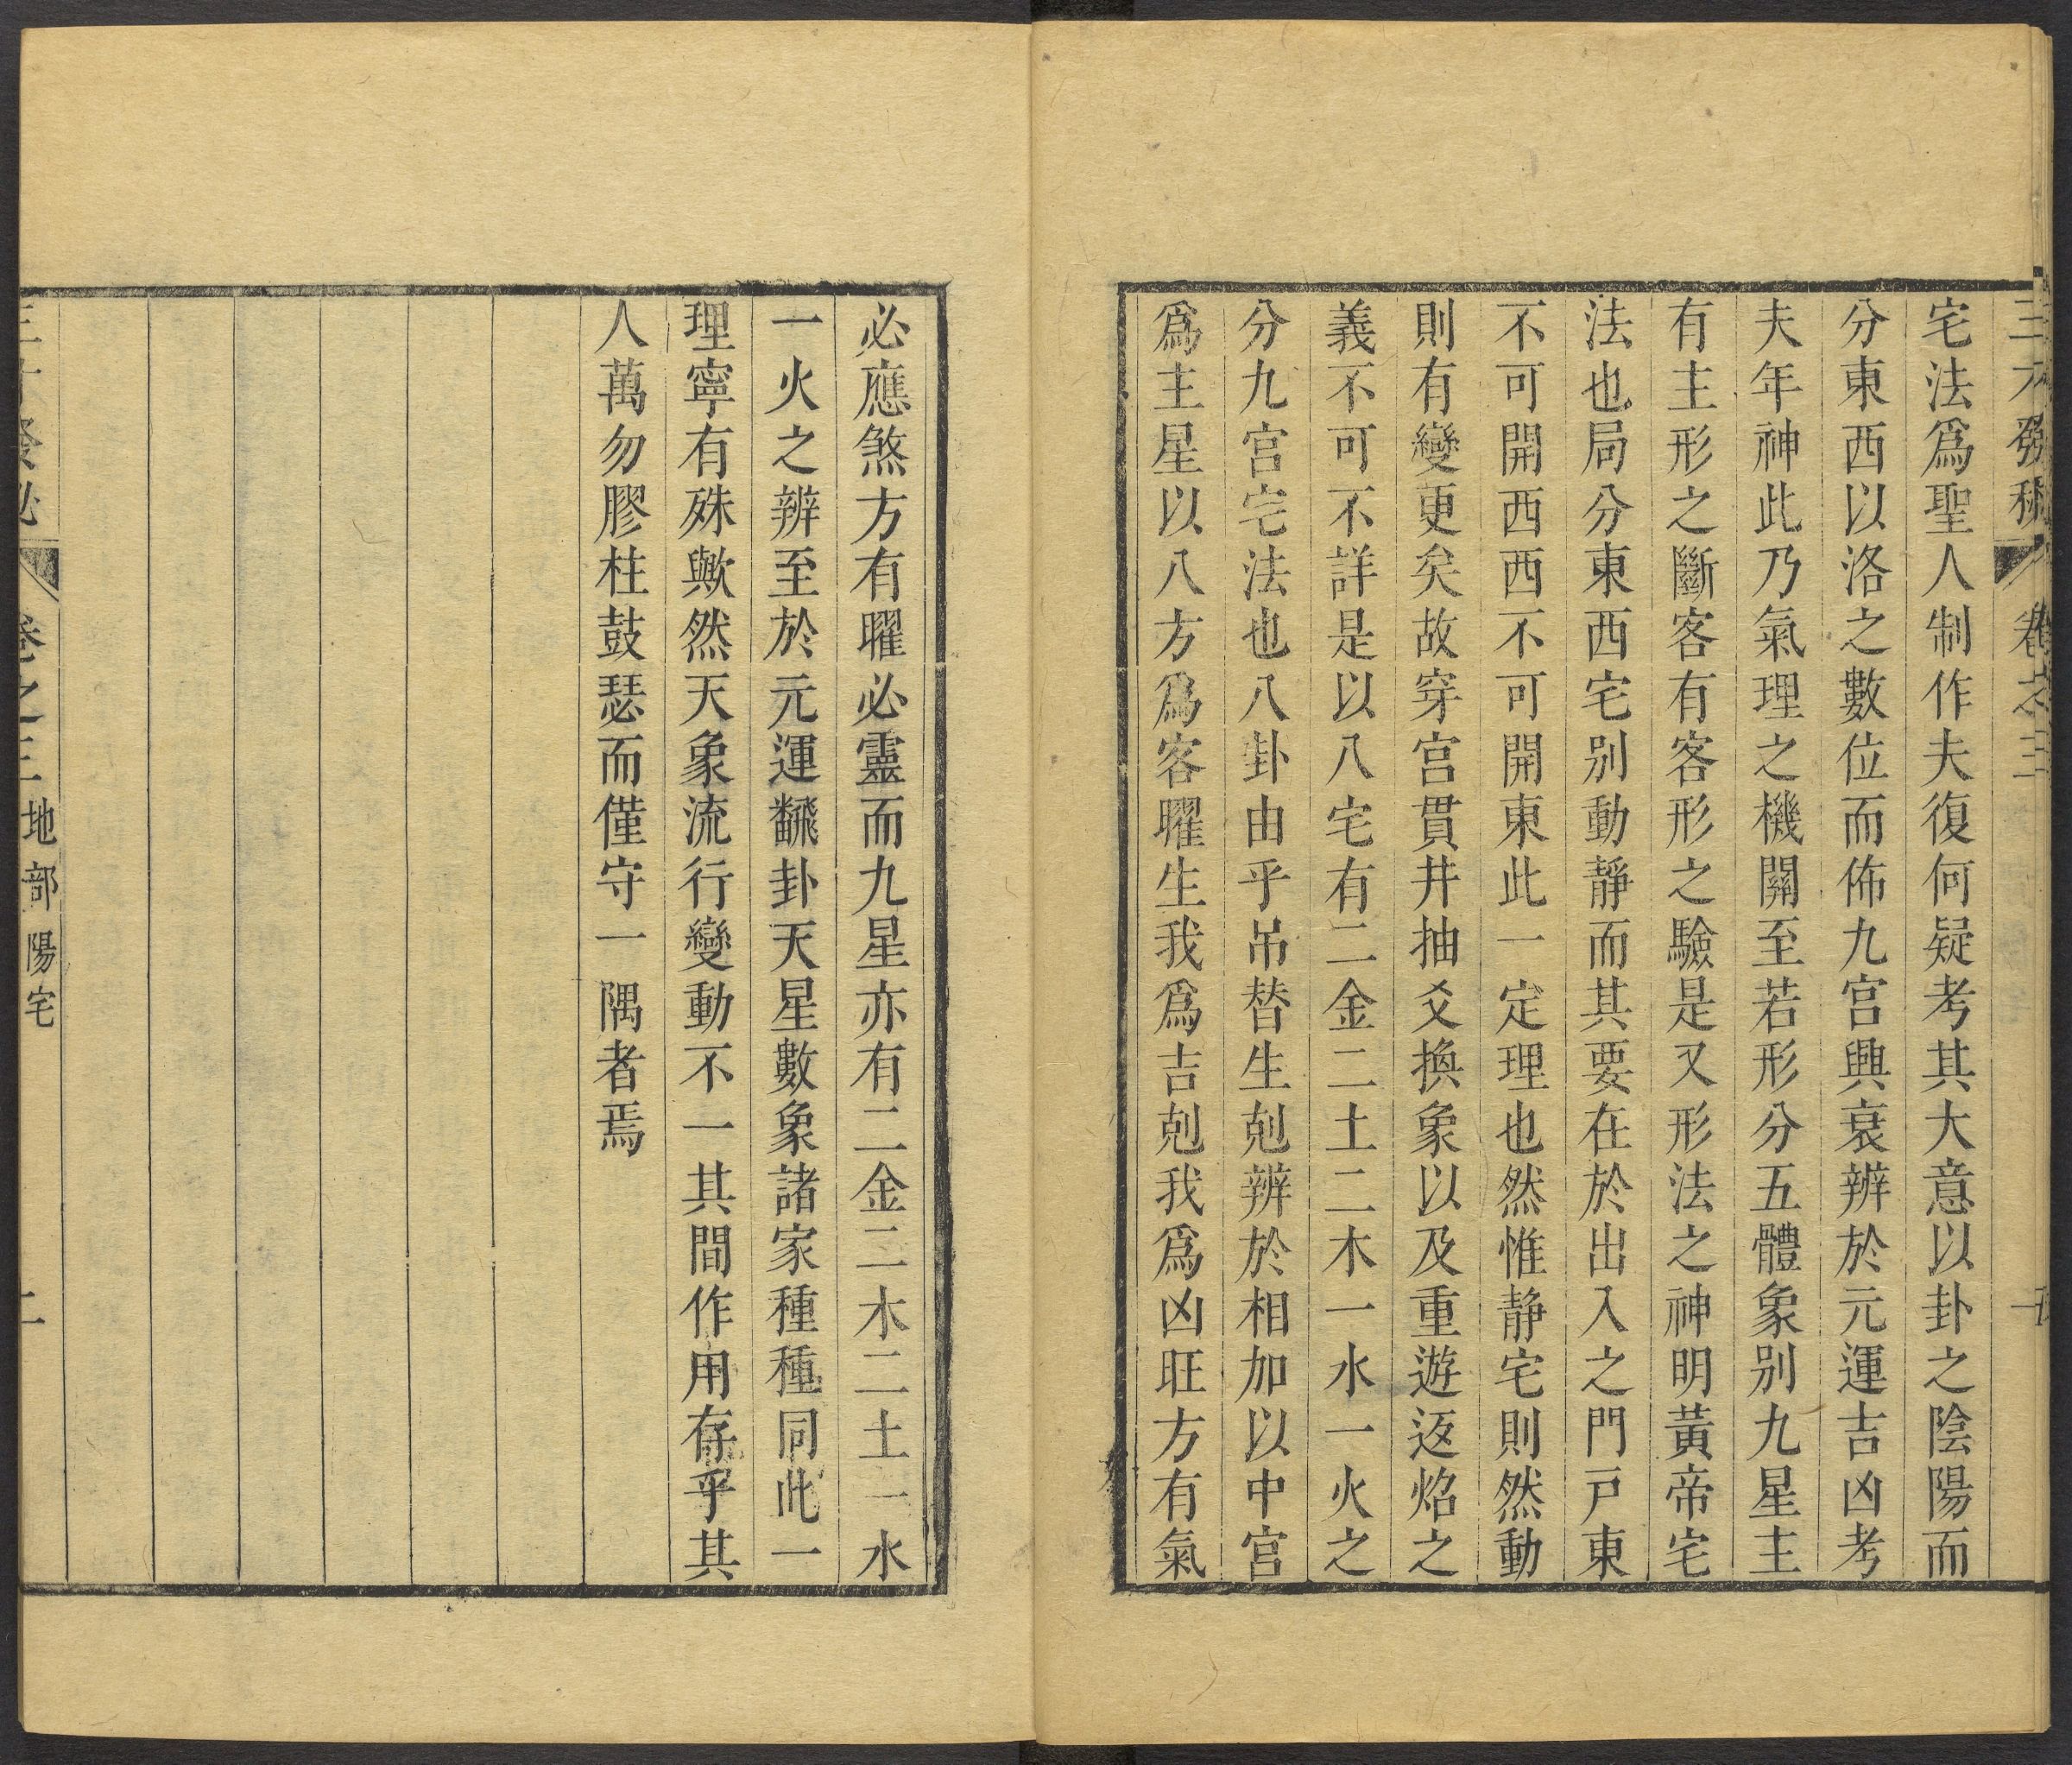 宅法爲聖人制作夫復何疑考其大意以卦之陰陽而
分東西以洛之數位而佈九宮興衰辨於元運吉凶考
夫年神此乃氣理之機關至若形分五體象別九星主
有主形之斷客有客形之驗是又形法之神明黃帝宅
法也局分東西宅別動靜而其要在於出入之門戸東
不可開西西不可開東此一定理也然惟靜宅則然動
則有變更矣故穿宮貫井抽爻換象以及重遊返焰之
義不可不詳是以八宅有二金二土二木一水一火之
分九宮宅法也八卦由乎吊替生剋辨於相加以中宮
爲主星以八方爲客曜生我爲吉剋我爲凶旺方有氣
必應煞方有曜必靈而九星亦有二金二木二土一水
一火之辨至於元運飜卦天星數象諸家種種同此一
理寧有殊歟然天象流行變動不一其間作用存乎其
人萬勿膠柱鼓瑟而僅守一隅者焉
卷之三 地部陽宅 二